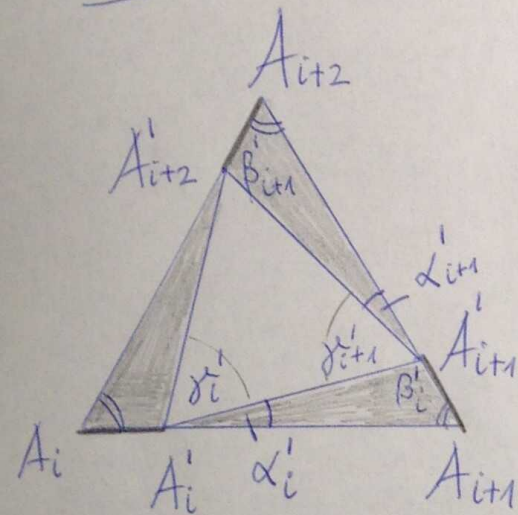 A_{i+2}
A'_{i+2}
β'_{i+1}
α'_{i+1}
γ'_{i+1}
A'_{i+1}
γ'_i
β'_i
A_i
A'_i
α'_i
A_{i+1}